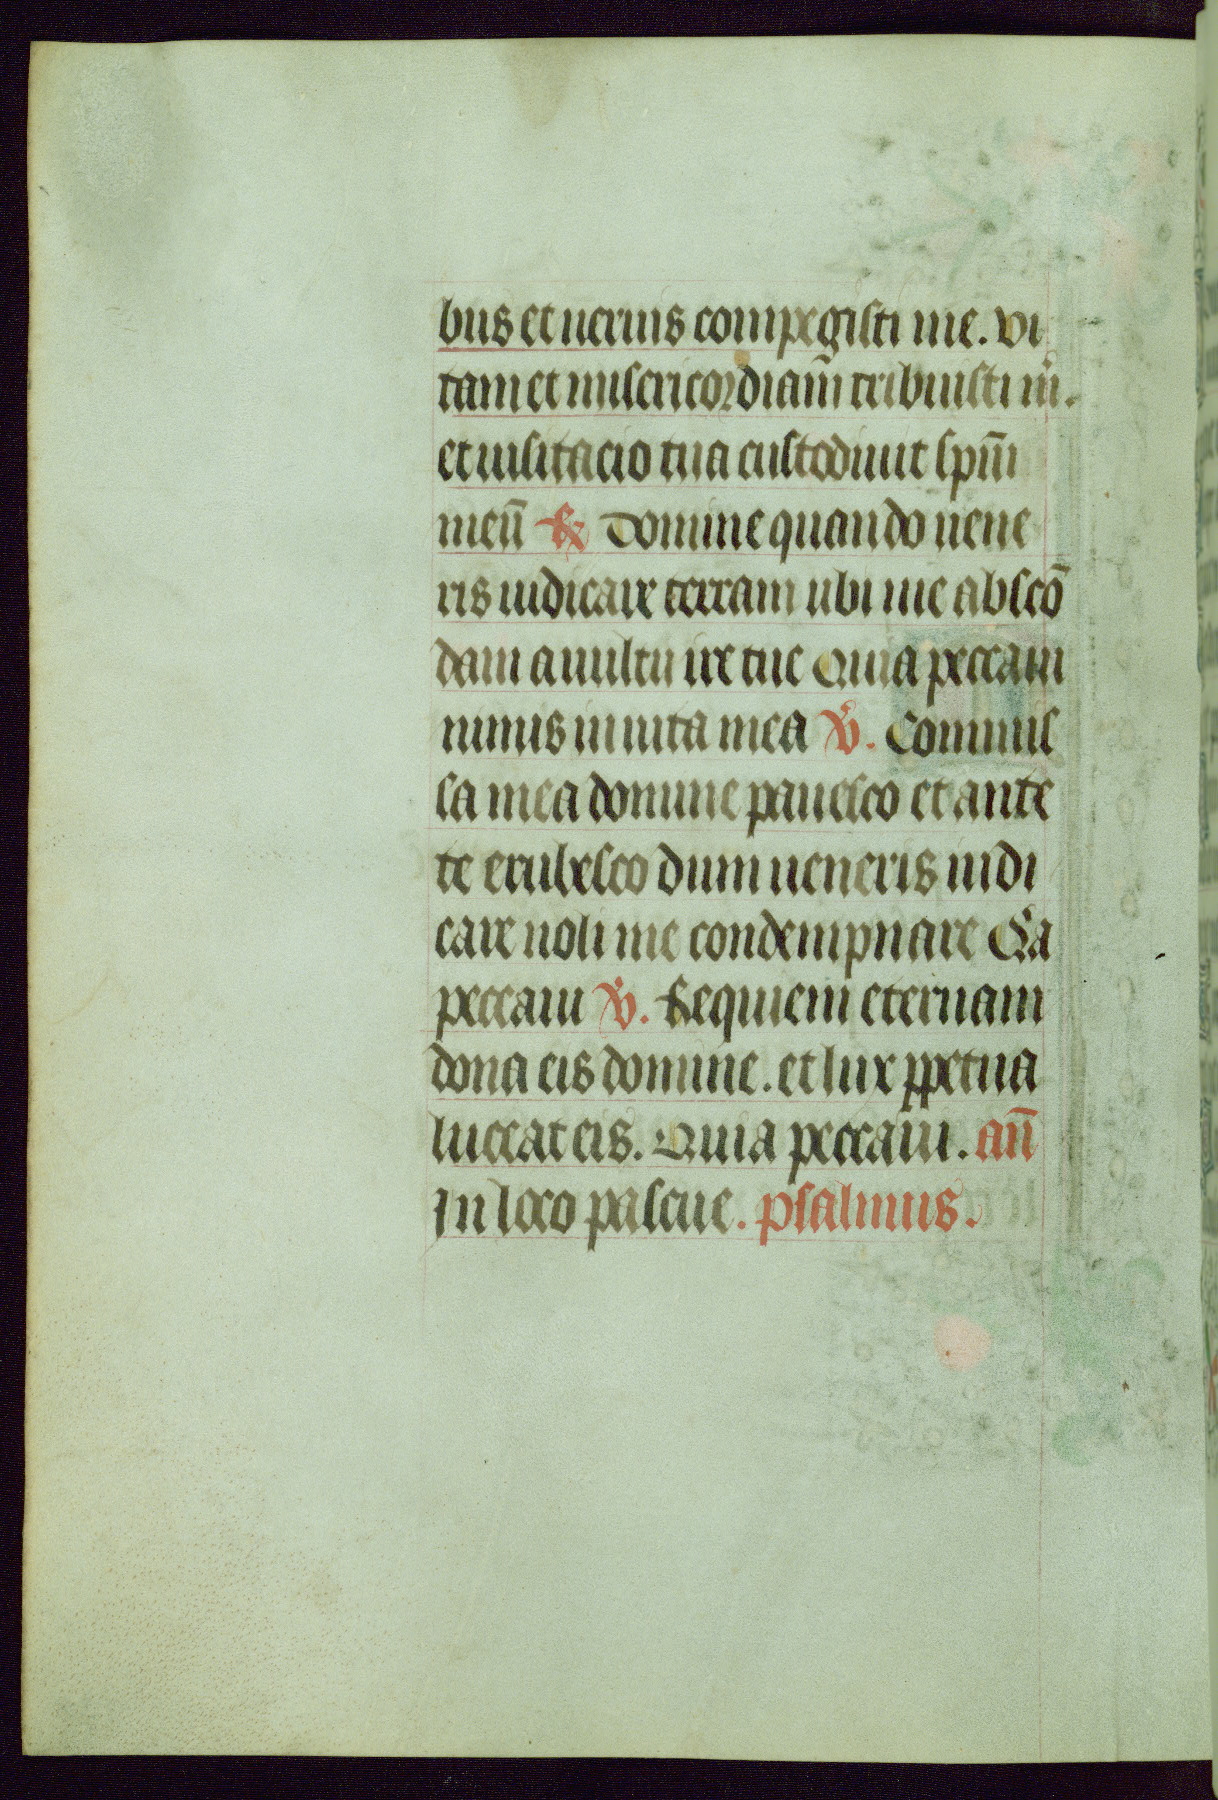 bus et neruis compegisti me. vi
tam et misericordiam̄ tribuisti m̄.
et uisitacio tua custodiuit spm̄
meū ℟ Domine quando uene
ris iudicare terram ubi me abscō
dam a uultu ire tue Quia peccaui
nimis in uita mea ℣. Commis
sa mea domine pauesco et ante
te erubesco dum ueneris iudi
care noli me condempnare Qͥa
peccaui ℣. Requiem eternam
dona eis domine. et lux ꝑpetua
luceat eis. Quia peccaui. an̄
In loco pascue. psalmus.